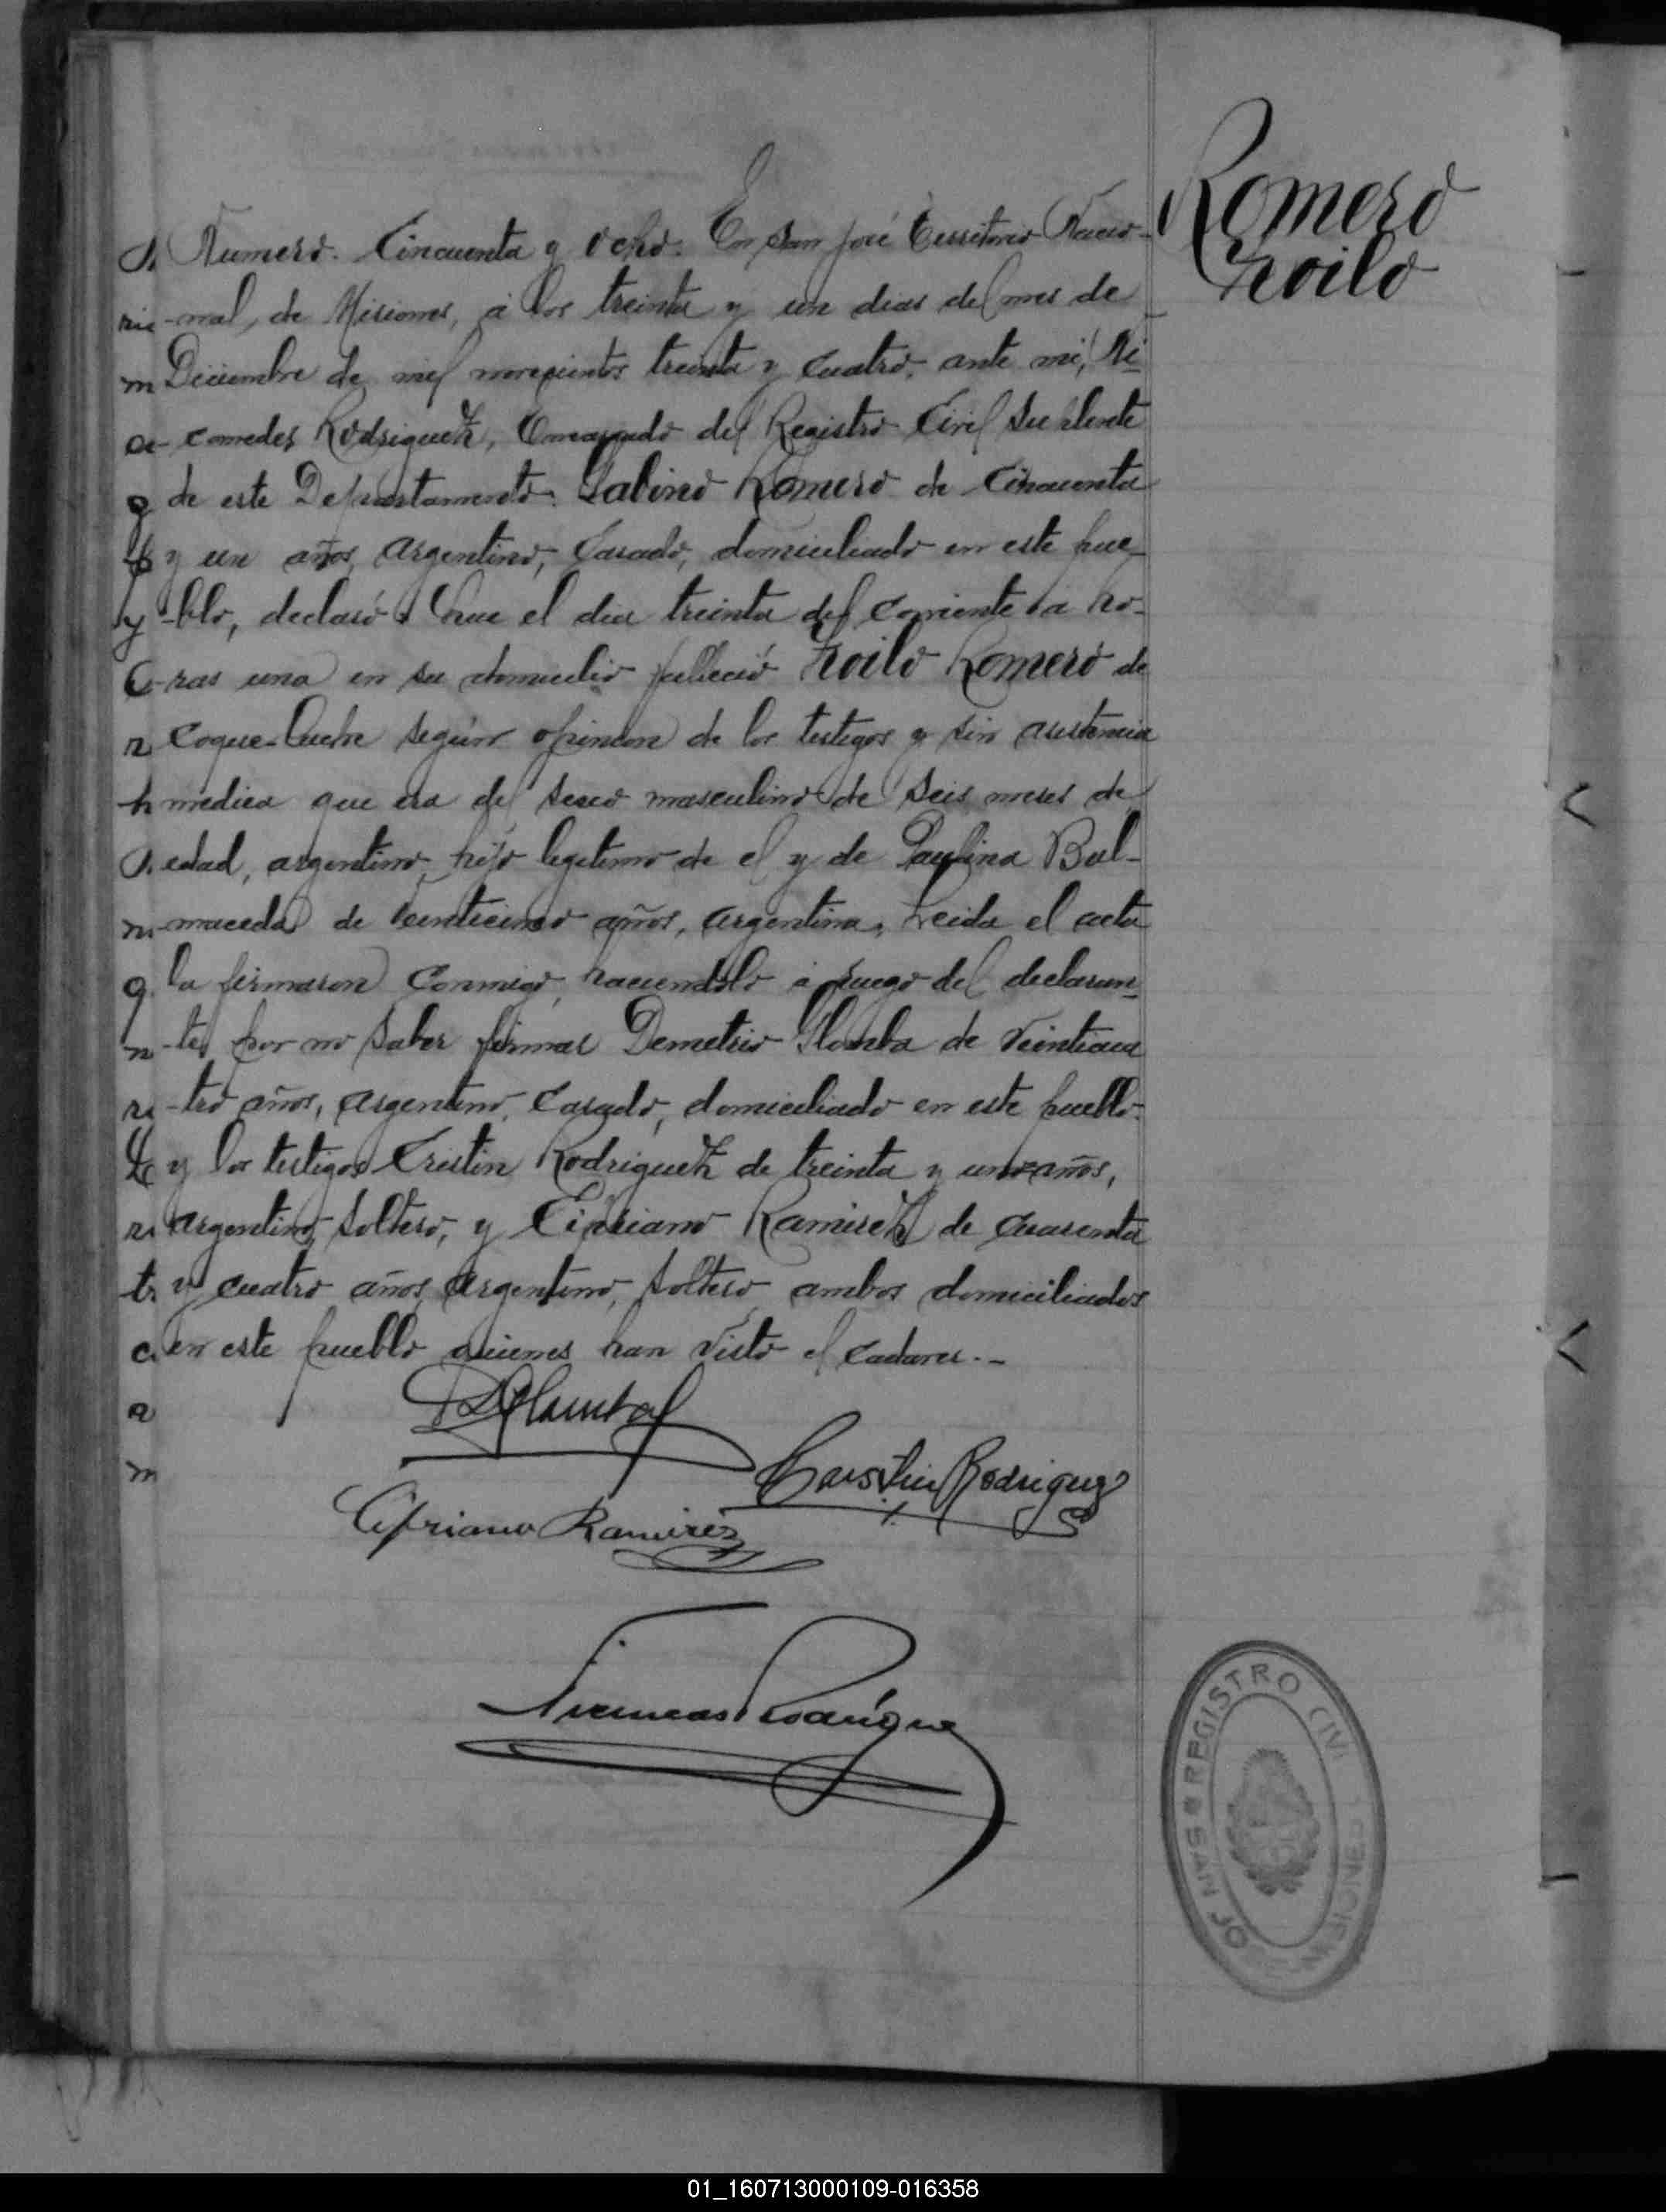 Romero
Zoilo
Numero. Cincuenta y ocho. En San José Territorio Nacio-
-nal, de Misiones, á los treinta y un dias del mes de
Diciembre de mil novecientos treinta y cuatro, ante mi, Ni-
-comedes Rodriguez, Encargado del Registro Civil Suplente
de este Departamento. Sabino Romero de Cincuenta
y un años, Argentino, Casado, domiciliado en este pue-
-blo, declaró: Que el dia treinta del corriente á ho-
-ras una en su domicilio falleció Zoilo Romero de
Coque-luche según opinion de los testigos y sin asistencia
medica que era del sexo masculino de seis meses de
edad, argentino, hijo legitimo de el y de Paulina Bal-
-maceda de veinticinco años, argentina, Leida el acta
la firmaron conmigo, haciendolo á ruego del declaran-
-te por no saber firmar Demetrio de Veinticua
-tro años, argentino, Casado, domiciliado en este pueblo.
y los testigos Cristin Rodriguez de treinta y un años,
argentino, soltero, y Cipriano Ramirez de cuarenta
y cuatro años, Argentino, soltero, ambos domiciliados
en este pueblo quienes han visto el cadaver.-
Rodriguez
Cipriano Ramirez
Nicomedes Rodriguez
REGISTRO CIVIL
MISIONES
SAN JO
01_160713000109-016358